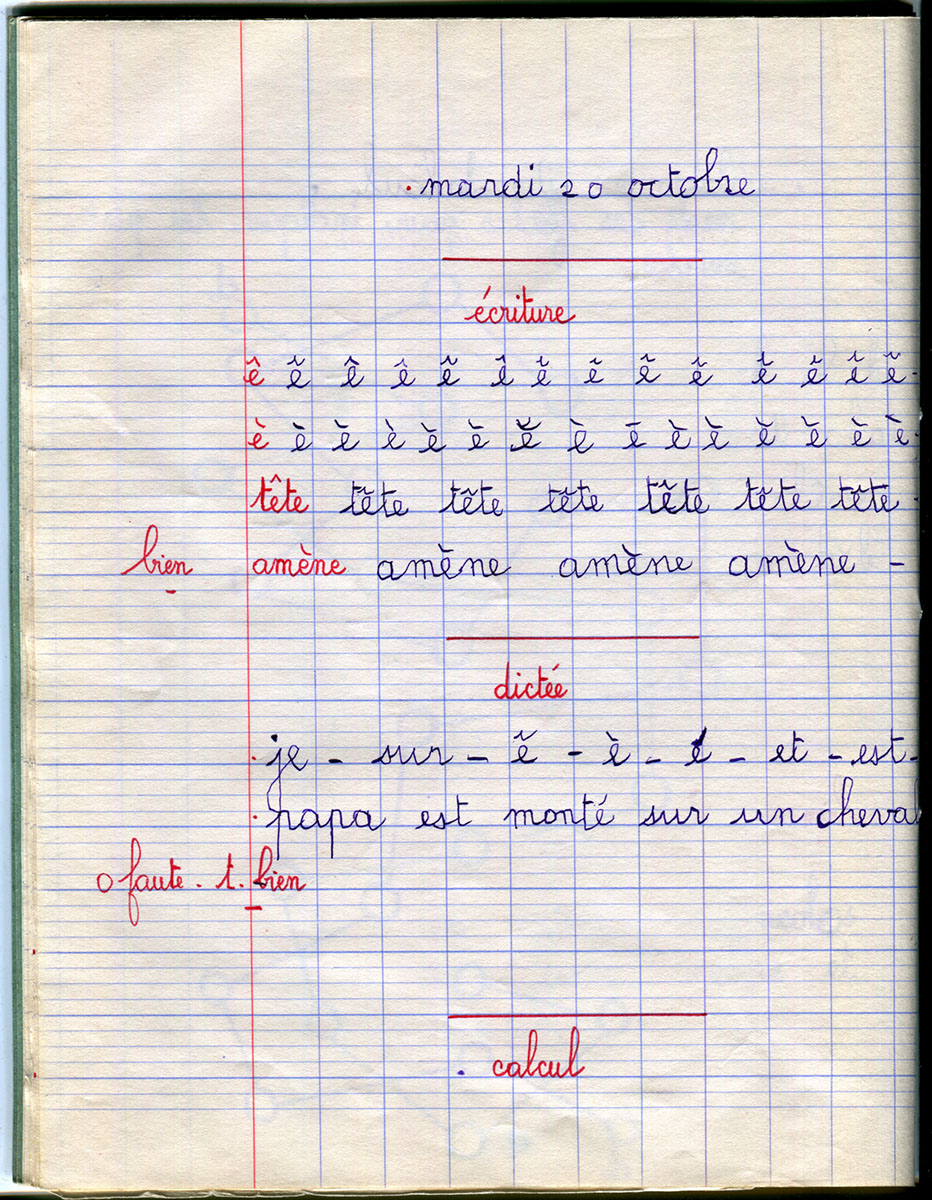 mardi 20 octobre
écriture
ê ê ê ê ê ê ê ê ê ê ê ê ê ê -
è è è è è è è è è è è è è è è -
tête tête tête tête tête tête tête -
bien amène amène amène amène -
dictée
je - sur - ê - è - é - et - est -
papa est monté sur un cheval
0 faute . t. bien
. calcul